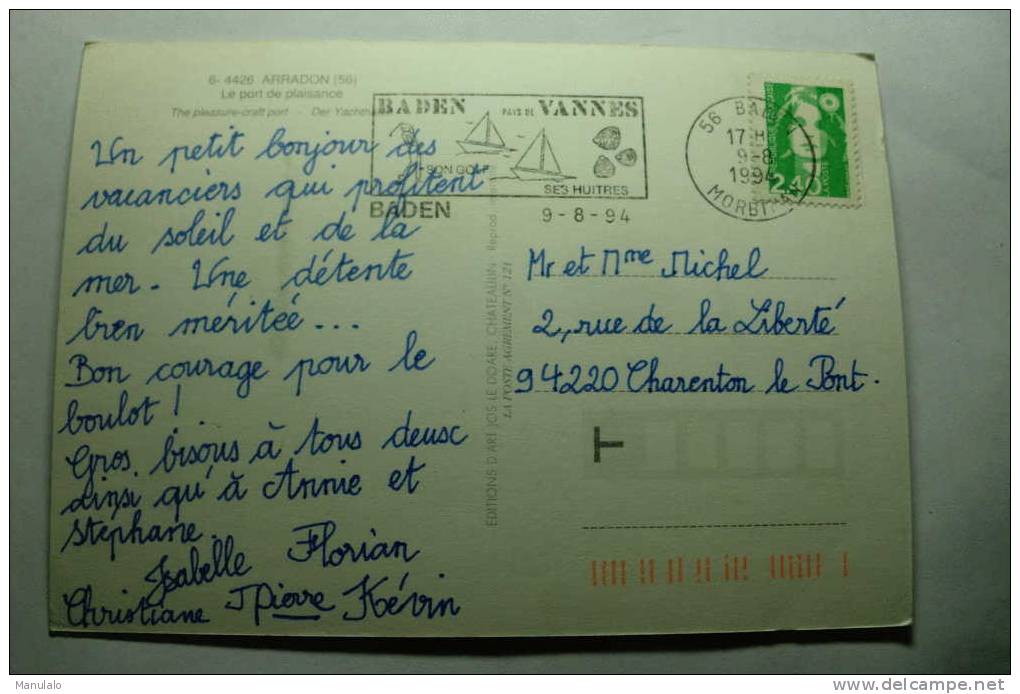 6- 4426 ARRADON (56)
Le port de plaisance
The pleasure-craft port - Der Yachthafen
BADEN PAYS DE VANNES
SON GOLF
SES HUITRES
BADEN 9-8-94
56 BADEN
17 H
9-8
1994
MORBIHAN
Un petit bonjour des
vacanciers qui profitent
du soleil et de la
mer. Une détente
bien méritée...
Bon courage pour le
boulot !
Gros bisous à tous deux
ainsi qu'à Annie et
Stéphane.
Isabelle Florian
Christiane JPierre Kévin
EDITIONS D'ART JOS LE DOARE, CHATEAULIN - Reprod.
LA POSTE AGREMENT N° 121
Mr et Mme Michel
2, rue de la Liberté
94220 Charenton le Pont.
T
Manulalo
www.delcampe.net